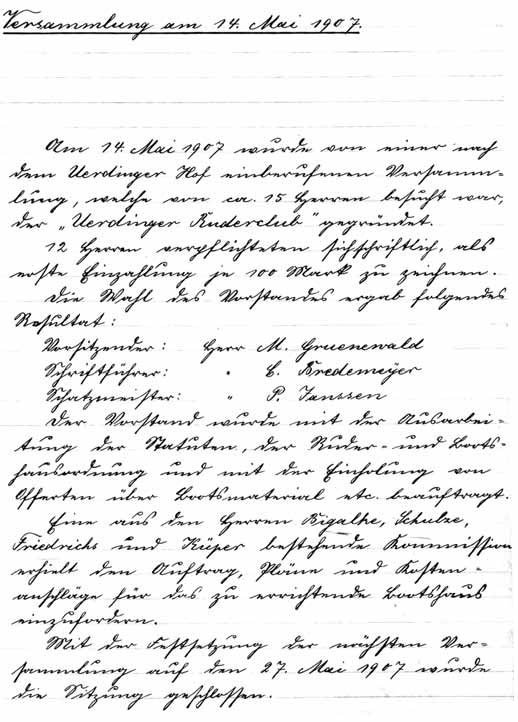 Versammlung am 14. Mai 1907.
Am 14. Mai 1907 wurde von einer nach
dem Uerdinger Hof einberufenen Versamm-
lung, welche von ca. 15 Herren besucht war,
der „Uerdinger Ruderclub" gegründet.
12 Herren verpflichteten sich schriftlich, als
erste Einzahlung je 100 Mark zu zeichnen.
Die Wahl des Vorstandes ergab folgendes
Resultat:
Vorsitzender: Herr M. Gruenewald
Schriftführer: " C. Bredemeÿer
Schatzmeister: " P. Janssen
Der Vorstand wurde mit der Ausarbei-
tung der Statuten, der Ruder- und Boots-
hausordnung und mit der Einholung von
Offerten über Bootsmaterial etc. beauftragt.
Eine aus den Herren Bigalke, Schulze,
Friedrichs und Küper bestehende Kommission
erhielt den Auftrag, Pläne und Kosten-
anschläge für das zu errichtende Bootshaus
einzufordern.
Mit der Festsetzung der nächsten Ver-
sammlung auf den 27. Mai 1907 wurde
die Sitzung geschlossen.